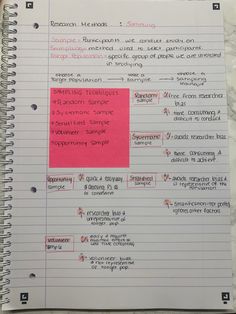 Research Methods : Sampling
Sample = Participants we conduct study on
Sampling = method used to select participants.
Target Population = specific group of people we are interested
in studying.
choose a Target Population → choose a sample → choose a sampling
SAMPLING TECHNIQUES
* Random Sample
* Systematic Sample
* Stratified Sample
* Volunteer Sample
* Opportunity Sample
Random Sample
free from researcher bias
time consuming & difficult to conduct
Systematic Sample
avoids researcher bias
time consuming & difficult to achieve.
Opportunity Sample
quick & easy
researcher bias & unrepresentative of target pop.
Stratified Sample
avoids researcher bias & is representative of the
Volunteer Sample
easy & requires
less time consuming
volunteer bias & not representative of target pop.